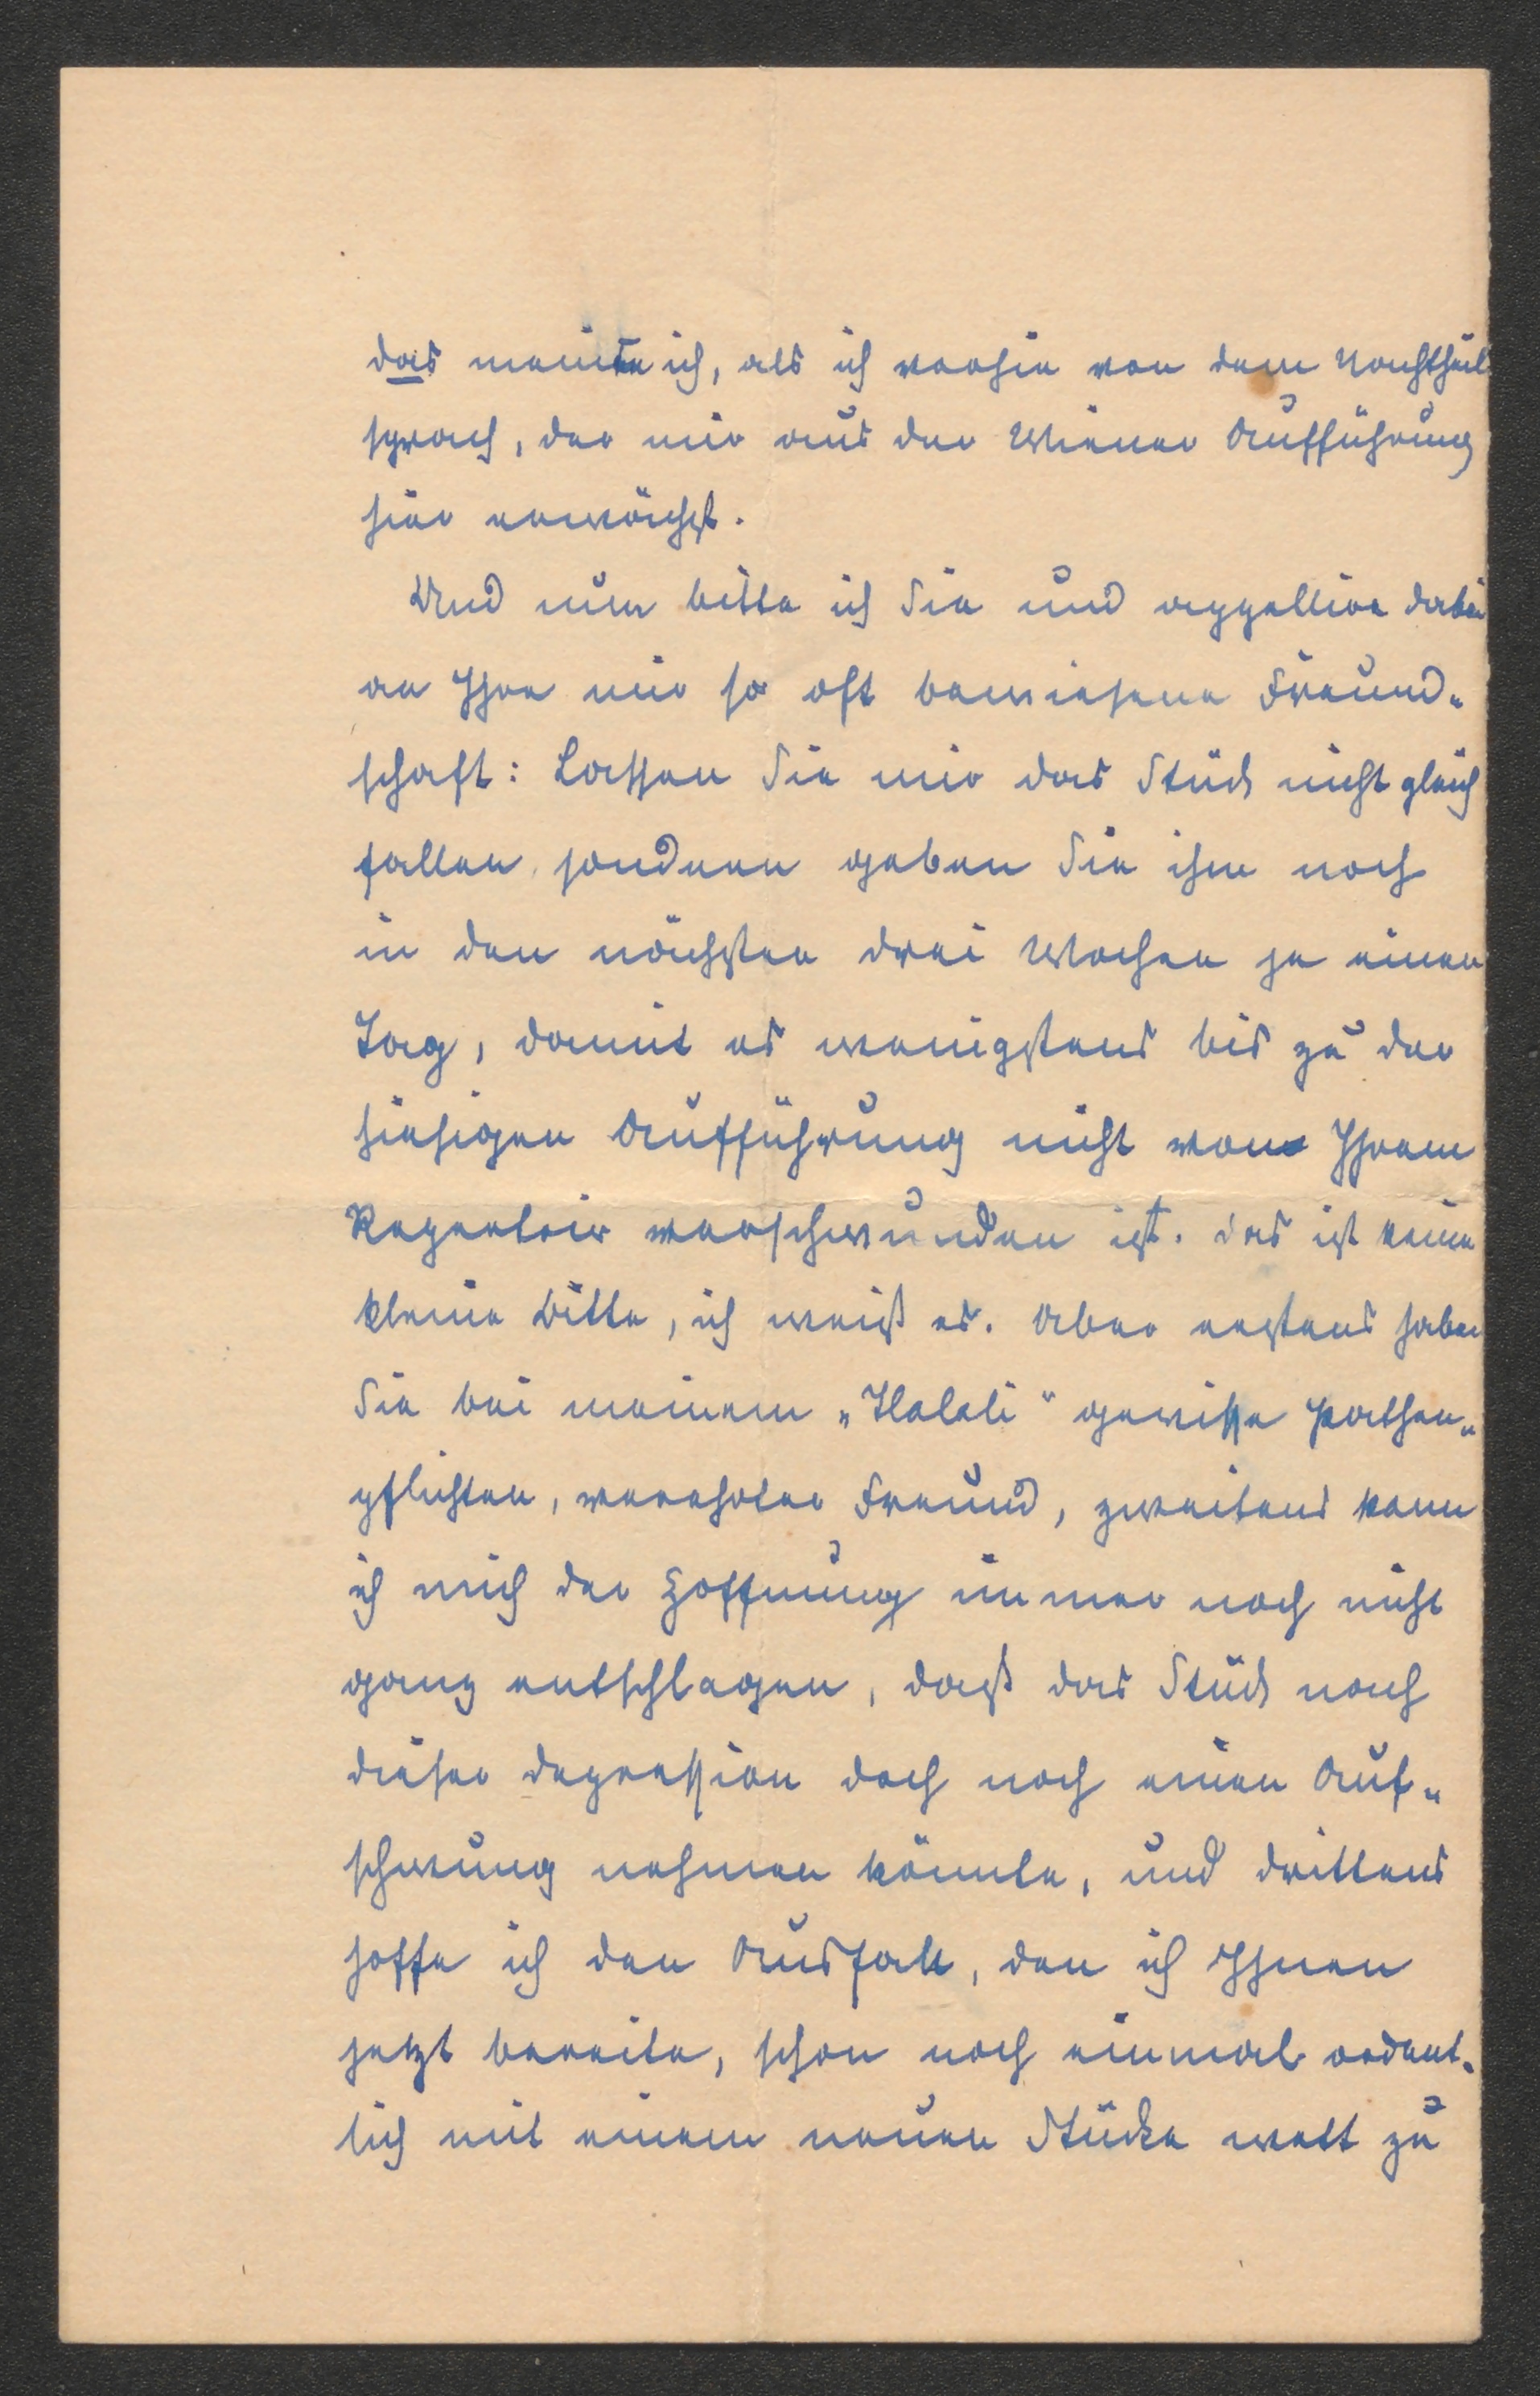 das meinte ich, als ich vorhin von dem Nachtheil
sprach, der mir aus der Wiener Aufführung
hier erwächst.
Und nun bitte ich Sie und appellire dabei
an Ihre mir so oft bewiesene Freund-
schaft: Lassen Sie mir das Stück nicht gleich
fallen, sondern geben Sie ihm noch
in den nächsten drei Wochen je einen
Tag, damit es wenigstens bis zu der
hiesigen Aufführung nicht von Ihrem
Repertoir verschwunden ist. Das ist keine
kleine Bitte, ich weiß es. Aber erstens haben
Sie bei meinem „Halali“ gewisse Pathen-
pflichten, verehrter Freund, zweitens kann
ich mich der Hoffnung immer noch nicht
ganz entschlagen, daß das Stück nach
dieser Depression doch noch einen Auf-
schwung nehmen könnte, und drittens
hoffe ich den Ausfall, den ich Ihnen
jetzt bereite, schon noch einmal ordent-
lich mit einem neuen Stücke wett zu